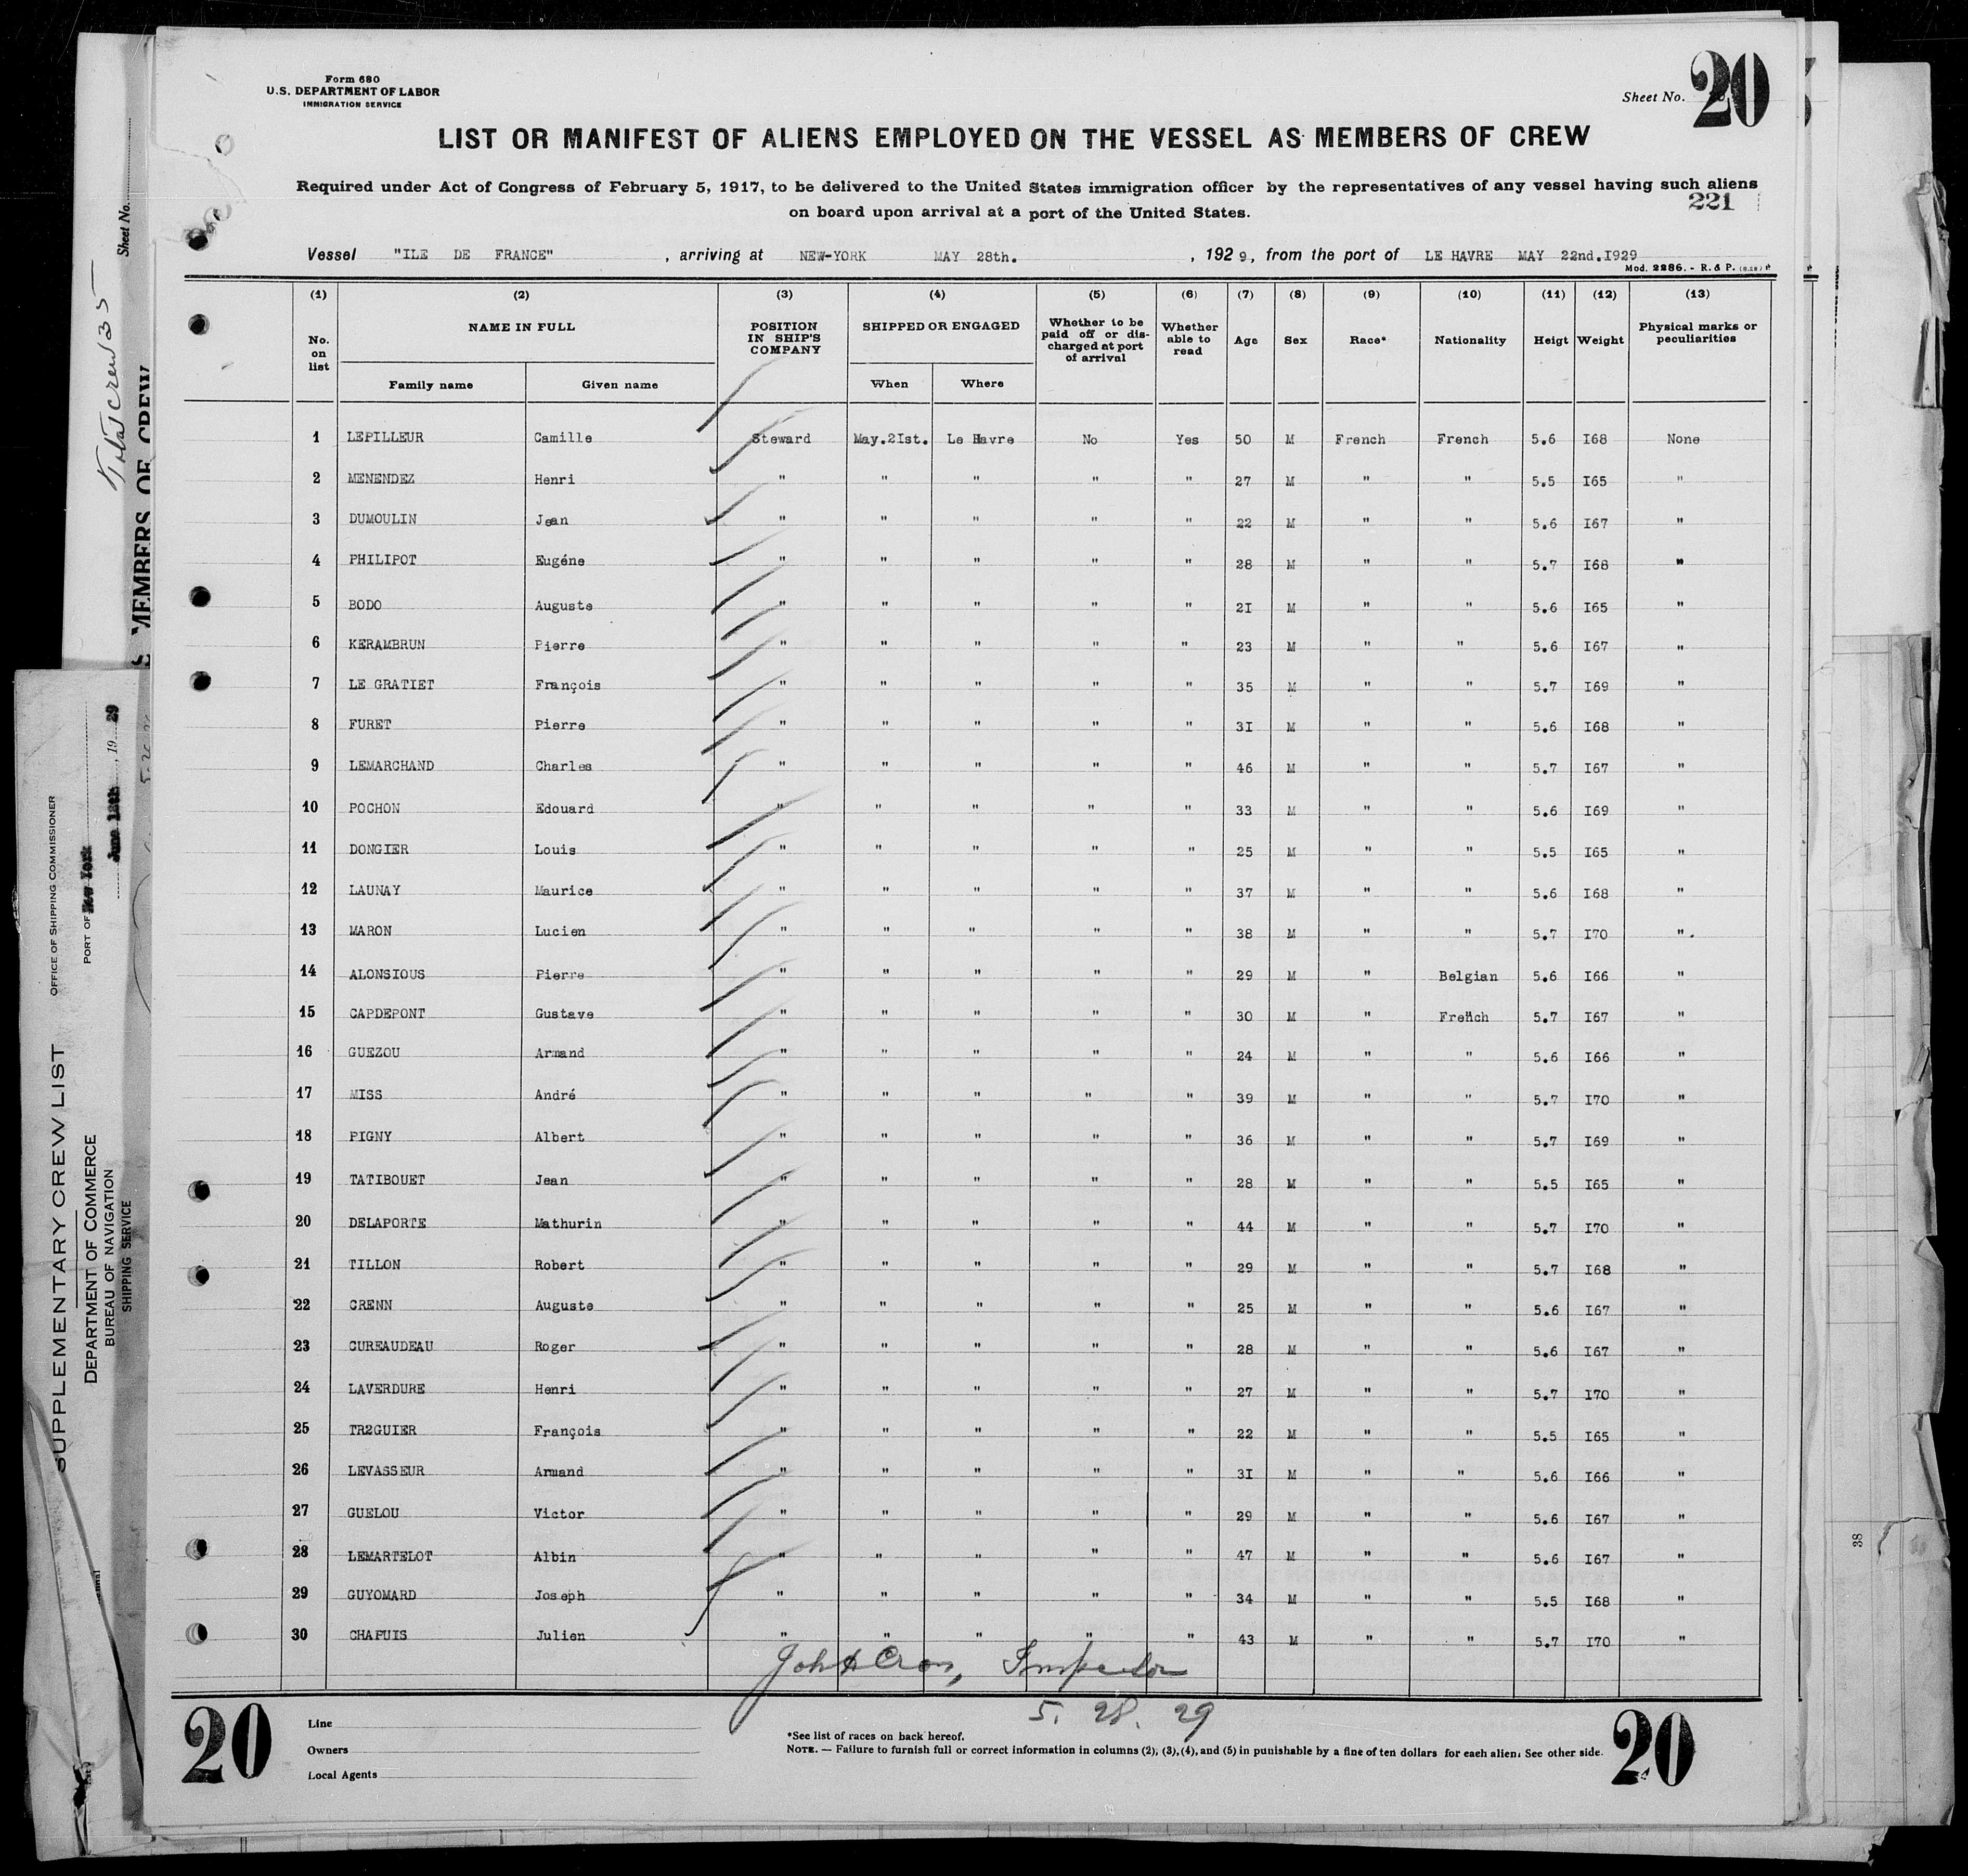 Form 680
U.S. DEPARTMENT OF LABOR
IMMIGRATION SERVICE
Sheet No. 20
LIST OR MANIFEST OF ALIENS EMPLOYED ON THE VESSEL AS MEMBERS OF CREW
Required under Act of Congress of February 5, 1917, to be delivered to the United States immigration officer by the representatives of any vessel having such aliens
on board upon arrival at a port of the United States.
221
Vessel "ILE DE FRANCE", arriving at NEW-YORK MAY 28th., 1929, from the port of LE HAVRE MAY 22nd.I929
Mod. 2286. - R. & P.
(1) (2) (3) (4) (5) (6) (7) (8) (9) (10) (11) (12) (13)
No. on list NAME IN FULL POSITION IN SHIP'S COMPANY SHIPPED OR ENGAGED Whether to be paid off or discharged at port of arrival Whether able to read Age Sex Race* Nationality Heigt Weight Physical marks or peculiarities
Family name Given name When Where
1 LEPILLEUR Camille Steward May.2Ist. Le Havre No Yes 50 M French French 5.6 I68 None
2 MENENDEZ Henri " " " " " 27 M " " 5.5 I65 "
3 DUMOULIN Jean " " " " " 22 M " " 5.6 I67 "
4 PHILIPOT Eugéne " " " " " 28 M " " 5.7 I68 "
5 BODO Auguste " " " " " 2I M " " 5.6 I65 "
6 KERAMBRUN Pierre " " " " " 23 M " " 5.6 I67 "
7 LE GRATIET François " " " " " 35 M " " 5.7 I69 "
8 FURET Pierre " " " " " 3I M " " 5.6 I68 "
9 LEMARCHAND Charles " " " " " 46 M " " 5.7 I67 "
10 POCHON Edouard " " " " " 33 M " " 5.6 I69 "
11 DONGIER Louis " " " " " 25 M " " 5.5 I65 "
12 LAUNAY Maurice " " " " " 37 M " " 5.6 I68 "
13 MARON Lucien " " " " " 38 M " " 5.7 I70 ".
14 ALONSIOUS Pierre " " " " " 29 M " Belgian 5.6 I66 "
15 CAPDEPONT Gustave " " " " " 30 M " French 5.7 I67 "
16 GUEZOU Armand " " " " " 24 M " " 5.6 I66 "
17 MISS André " " " " " 39 M " " 5.7 I70 "
18 PIGNY Albert " " " " " 36 M " " 5.7 I69 "
19 TATIBOUET Jean " " " " " 28 M " " 5.5 I65 "
20 DELAPORTE Mathurin " " " " " 44 M " " 5.7 I70 "
21 TILLON Robert " " " " " 29 M " " 5.7 I68 "
22 CRENN Auguste " " " " " 25 M " " 5.6 I67 "
23 CUREAUDEAU Roger " " " " " 28 M " " 5.6 I67 "
24 LAVERDURE Henri " " " " " 27 M " " 5.7 I70 "
25 TR2GUIER François " " " " " 22 M " " 5.5 I65 "
26 LEVASSEUR Armand " " " " " 3I M " " 5.6 I66 "
27 GUELOU Victor " " " " " 29 M " " 5.6 I67 "
28 LEMARTELOT Albin " " " " " 47 M " " 5.6 I67 "
29 GUYOMARD Joseph " " " " " 34 M " " 5.5 I68 "
30 CHAPUIS Julien " " " " " 43 M " " 5.7 I70 "
5. 28. 29
20
Line
Owners
Local Agents
*See list of races on back hereof.
NOTE. — Failure to furnish full or correct information in columns (2), (3), (4), and (5) in punishable by a fine of ten dollars for each alien. See other side.
20
Sheet No.
Total crew 35
MEMBERS OF CREW
SUPPLEMENTARY CREW LIST
DEPARTMENT OF COMMERCE
BUREAU OF NAVIGATION
SHIPPING SERVICE
OFFICE OF SHIPPING COMMISSIONER
PORT OF New York
June 12th, 19 29
38